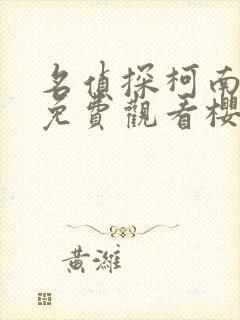 名偵探柯南
免費觀看櫻
黃濰